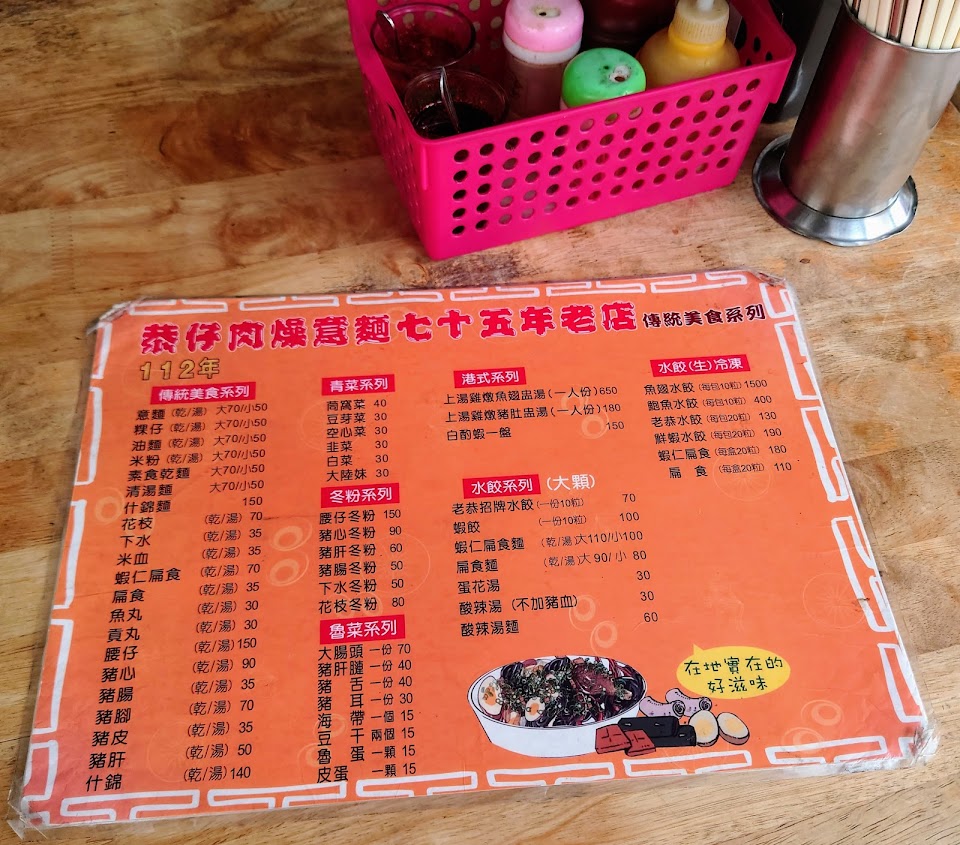 恭仔肉燥意麵七十五年老店 傳統美食系列
112年
傳統美食系列
意麵 (乾/湯) 大70/小50
粿仔 (乾/湯) 大70/小50
油麵 (乾/湯) 大70/小50
米粉 (乾/湯) 大70/小50
素食乾麵 大70/小50
清湯麵 大70/小50
什錦麵 150
花枝 (乾/湯) 70
下水 (乾/湯) 35
米血 (乾/湯) 35
蝦仁扁食 (乾/湯) 70
扁食 (乾/湯) 35
魚丸 (乾/湯) 30
貢丸 (乾/湯) 30
腰仔 (乾/湯) 150
豬心 (乾/湯) 90
豬腸 (乾/湯) 35
豬腳 (乾/湯) 70
豬皮 (乾/湯) 35
豬肝 (乾/湯) 50
什錦 (乾/湯) 140
青菜系列
萵窩菜 40
豆芽菜 30
空心菜 30
韭菜 30
白菜 30
大陸妹 30
冬粉系列
腰仔冬粉 150
豬心冬粉 90
豬肝冬粉 60
豬腸冬粉 50
下水冬粉 50
花枝冬粉 80
魯菜系列
大腸頭 一份 70
豬肝腱 一份 40
豬舌 一份 40
豬耳 一份 30
海帶 一個 15
豆干 兩個 15
魯蛋 一顆 15
皮蛋 一顆 15
港式系列
上湯雞燉魚翅盅湯(一人份) 650
上湯雞燉豬肚盅湯(一人份) 180
白酌蝦一盤 150
水餃系列 (大顆)
老恭招牌水餃 (一份10粒) 70
蝦餃 (一份10粒) 100
蝦仁扁食麵 (乾/湯) 大110/小100
扁食麵 (乾/湯) 大90/小 80
蛋花湯 30
酸辣湯 (不加豬血) 30
酸辣湯麵 60
水餃(生)冷凍
魚翅水餃 (每包10粒) 1500
鮑魚水餃 (每包10粒) 400
老恭水餃 (每包20粒) 130
鮮蝦水餃 (每包20粒) 190
蝦仁扁食 (每盒20粒) 180
扁食 (每盒20粒) 110
在地實在的
好滋味